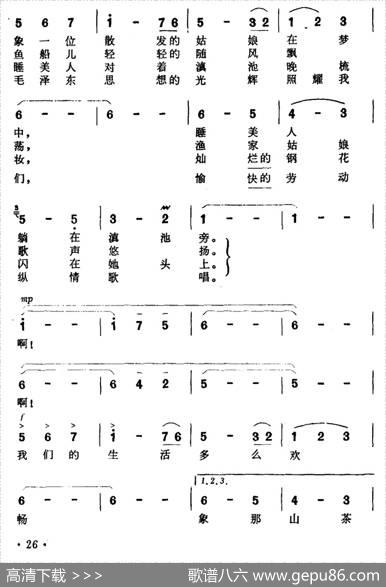 5 6 7 | i - 7 6 | 5 - 3 2 | 1 2 3 |
象 一 位 散 发 的 姑 娘 在 梦
鱼 船 儿 轻 轻 的 随 风 飘
睡 美 人 对 着 滇 池 晚 梳
毛 泽 东 思 想 的 光 辉 照 耀 我
6 - - | 6 - - | 6 - 5 | 4 - 3 |
中， 睡 美 人
荡， 渔 家 姑 娘
妆， 灿 烂 的 钢 花
们， 愉 快 的 劳 动
5 - 5 | 3 - 2 | 1 - - | 1 - - |
躺 在 滇 池 旁。
歌 声 悠 扬。
闪 在 她 头 上。
纵 情 歌 唱。
mp
i - - | i 7 5 | 6 - - | 6 - - |
啊！
6 - - | 6 4 2 | 5 - - | 6 - - |
啊！
f
5 6 7 | i - 7 6 | 5 - 3 2 | 1 2 3 |
我 们 的 生 活 多 么 欢
1.2.3.
6 - - | 6 - - | 6 - 5 | 4 - 3 |
畅 象 那 山 茶
· 26 ·
高清下载 >>> 歌谱八六 www.gepu86.com